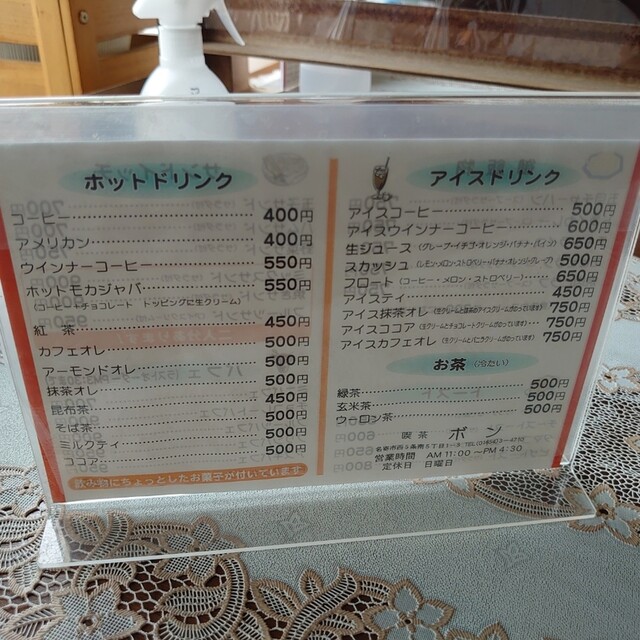 ホットドリンク
コーヒー 400円
アメリカン 400円
ウインナーコーヒー 550円
ホット・モカジャバ 550円
(コーヒー・チョコレート トッピングに生クリーム)
紅茶 450円
カフェオレ 500円
アーモンドオレ 500円
抹茶オレ 500円
昆布茶 450円
そば茶 500円
ミルクティ 500円
ココア 500円
飲み物にちょっとしたお菓子が付いています
アイスドリンク
アイスコーヒー 500円
アイスウインナーコーヒー 600円
生ジュース (グレープ・イチゴ・オレンジ・バナナ・パイン) 650円
スカッシュ (レモン・メロン・ストロベリー・バナナ・オレンジ・グレープ) 500円
フロート (コーヒー・メロン・ストロベリー) 650円
アイスティ 450円
アイス抹茶オレ 750円
アイスココア (生クリームとチョコレートクリームがのっています) 750円
アイスカフェオレ (生クリームとバニラクリームがのっています) 750円
お茶 (冷たい)
緑茶 500円
玄米茶 500円
ウーロン茶 500円
喫茶 ボン
営業時間 AM11:00～PM4:30
定休日 日曜日